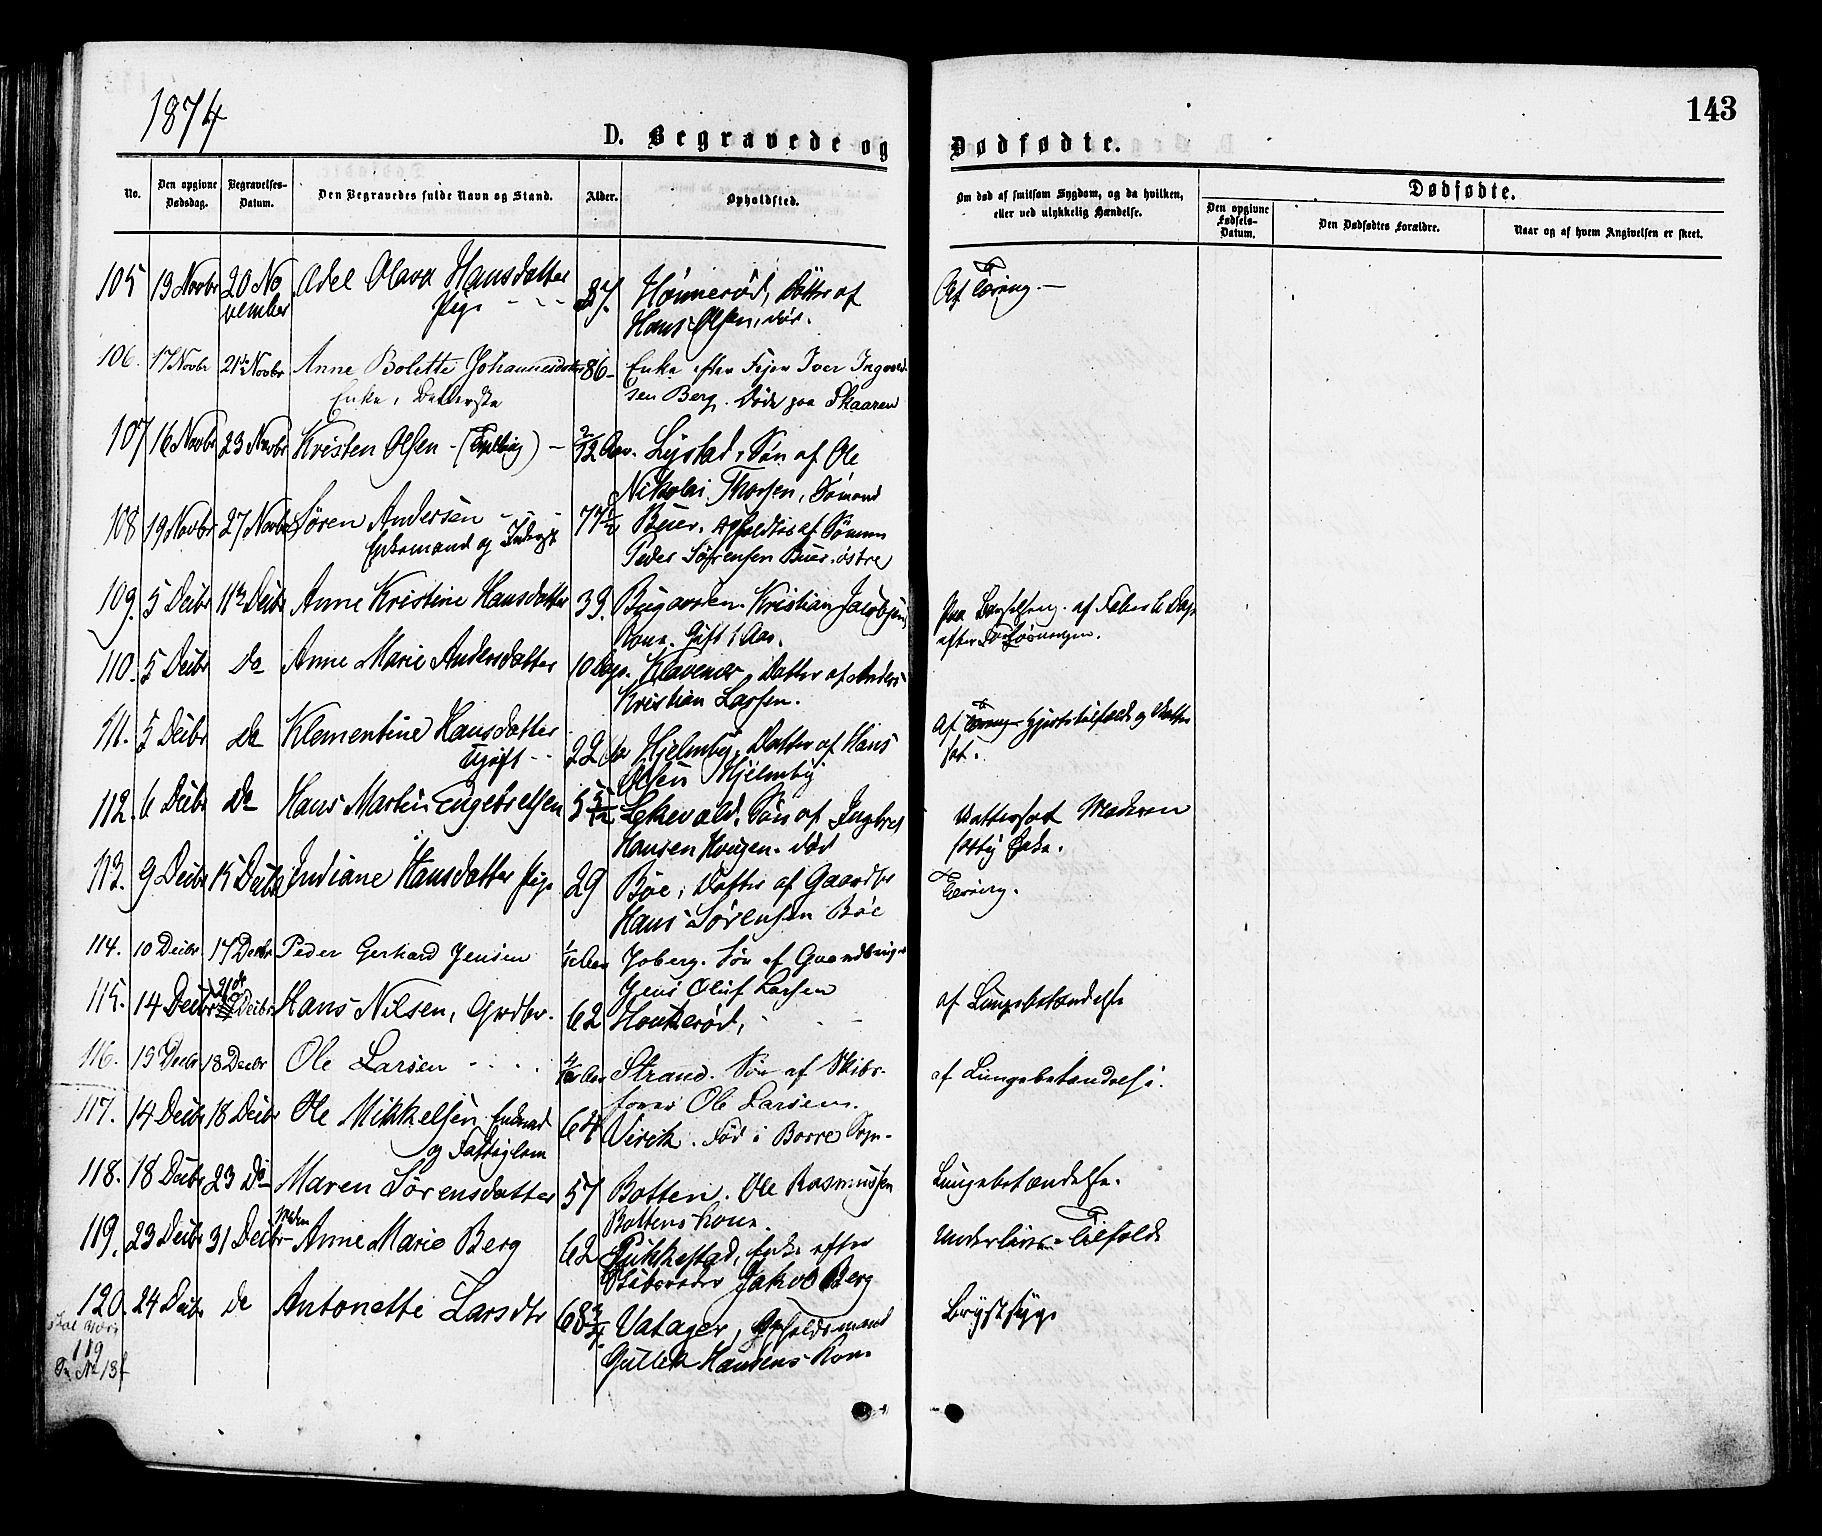 1874
143
D. Begravede og Dødfødte.
No. Den opgivne Dødsdag. Begravelses-Datum. Den Begravedes fulde Navn og Stand. Alder. Opholdsted. Om død af smitsom Sygdom, og da hvilken, eller ved ulykkelig Hændelse. Dødfødte.
Den opgivne Fødsels-Datum. Den Dødfødtes Forældre. Naar og af hvem Angivelsen er skeet.
105 19 Novbr 20 No Adel Olava Hansdatter 37. Hønnerød, Datter af Af Tæring. —
vember Pige Hans Olsen, død.
106. 17 Novbr 21de Novbr Anne Bolette Johannesdatter 86 - Enke efter Eier Iver Ingvald
Enke, sen Berg. Døde paa Skaaren
107 16 Novbr 23 Novbr Kristen Olsen - (Tvilling) — 2/12 Aar. Lystad, Søn af Ole
Nikolai Thorsen, Sømand
108 19 Novbr 27 Novbr Søren Andersen 77 1/2 Buer. af Sønnen
Enkemand og Peder Sørensen Buer østre
109. 5 Decbr 11te Decbr Anne Kristine Hansdatter 39. Bugaarden. Kristian Jacobsens Paa Barselseng. af Feber 6 Dage
Kone. Gift 1 Aar. efter Forløsningen.
110. 5 Decbr Do Anne Marie Andersdatter 10 Dage. Klavenes, Datter af Anders
Kristian Larsen.
111. 5 Decbr do Klementine Hansdatter 22 Aar Hjelmby. Datter af Hans Af Hjertetilfælde og Vatter
Ugift - - Olsen Hjelmby sot.
112. 6 Decbr Do Hans Martin Engebretsen 5 5/12 Lekevold. Søn af Ingbret Vattersot Moderen
Hansen Hougen. død fattig Enke.
113. 9 Decbr 15 Decbr Indiane Hansdatter Pige 29 Bøe, Datter af Gaardbr Tæring.
Hans Sørensen Bøe
114. 10 Decbr 17 Decbr Peder Gerhard Jensen Joberg. Søn af Gaardbruger
Jens Oluf Larsen
115. 14 Decbr 21de Decbr Hans Nilsen, Grdbr. 62 Hønnerød, af Lungebetændelse
116. 13 Decbr 18 Decbr Ole Larsen 4/12 Aar Strand. Søn af Skibs- af Lungebetændelse.
fører Ole Larsen.
117. 14 Decbr 18 Decbr Ole Mikkelsen Enkemd 64 Virik. Fød i Borre Sogn.
og Fattiglem
118. 18 Decbr 23 Do Maren Sørensdatter 57 Botten. Ole Rasmussen Lungebetændelse.
Bottens Kone.
119. 23 Decbr 31 Decbr Madm Anne Marie Berg 62 Pukkestad, Enke efter Underlivs-Tilfælde
Skibsreder Jakob Berg
120. 24 Decbr do Antonette Larsdtr 68 3/4 Vatager, Opholdsmand Brystsyge
Gullek Hansens Kone
skal være
119